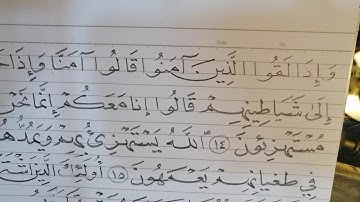 وَإِذَا لَقُوا الَّذِينَ آمَنُوا قَالُوا آمَنَّا وَإِذَا
إِلَىٰ شَيَاطِينِهِمْ قَالُوا إِنَّا مَعَكُمْ إِنَّمَا نَحْنُ
مُسْتَهْزِئُونَ ١٤ اللَّهُ يَسْتَهْزِئُ بِهِمْ وَيَمُدُّهُمْ
فِي طُغْيَانِهِمْ يَعْمَهُونَ ١٥ أُولَٰئِكَ الَّذِينَ